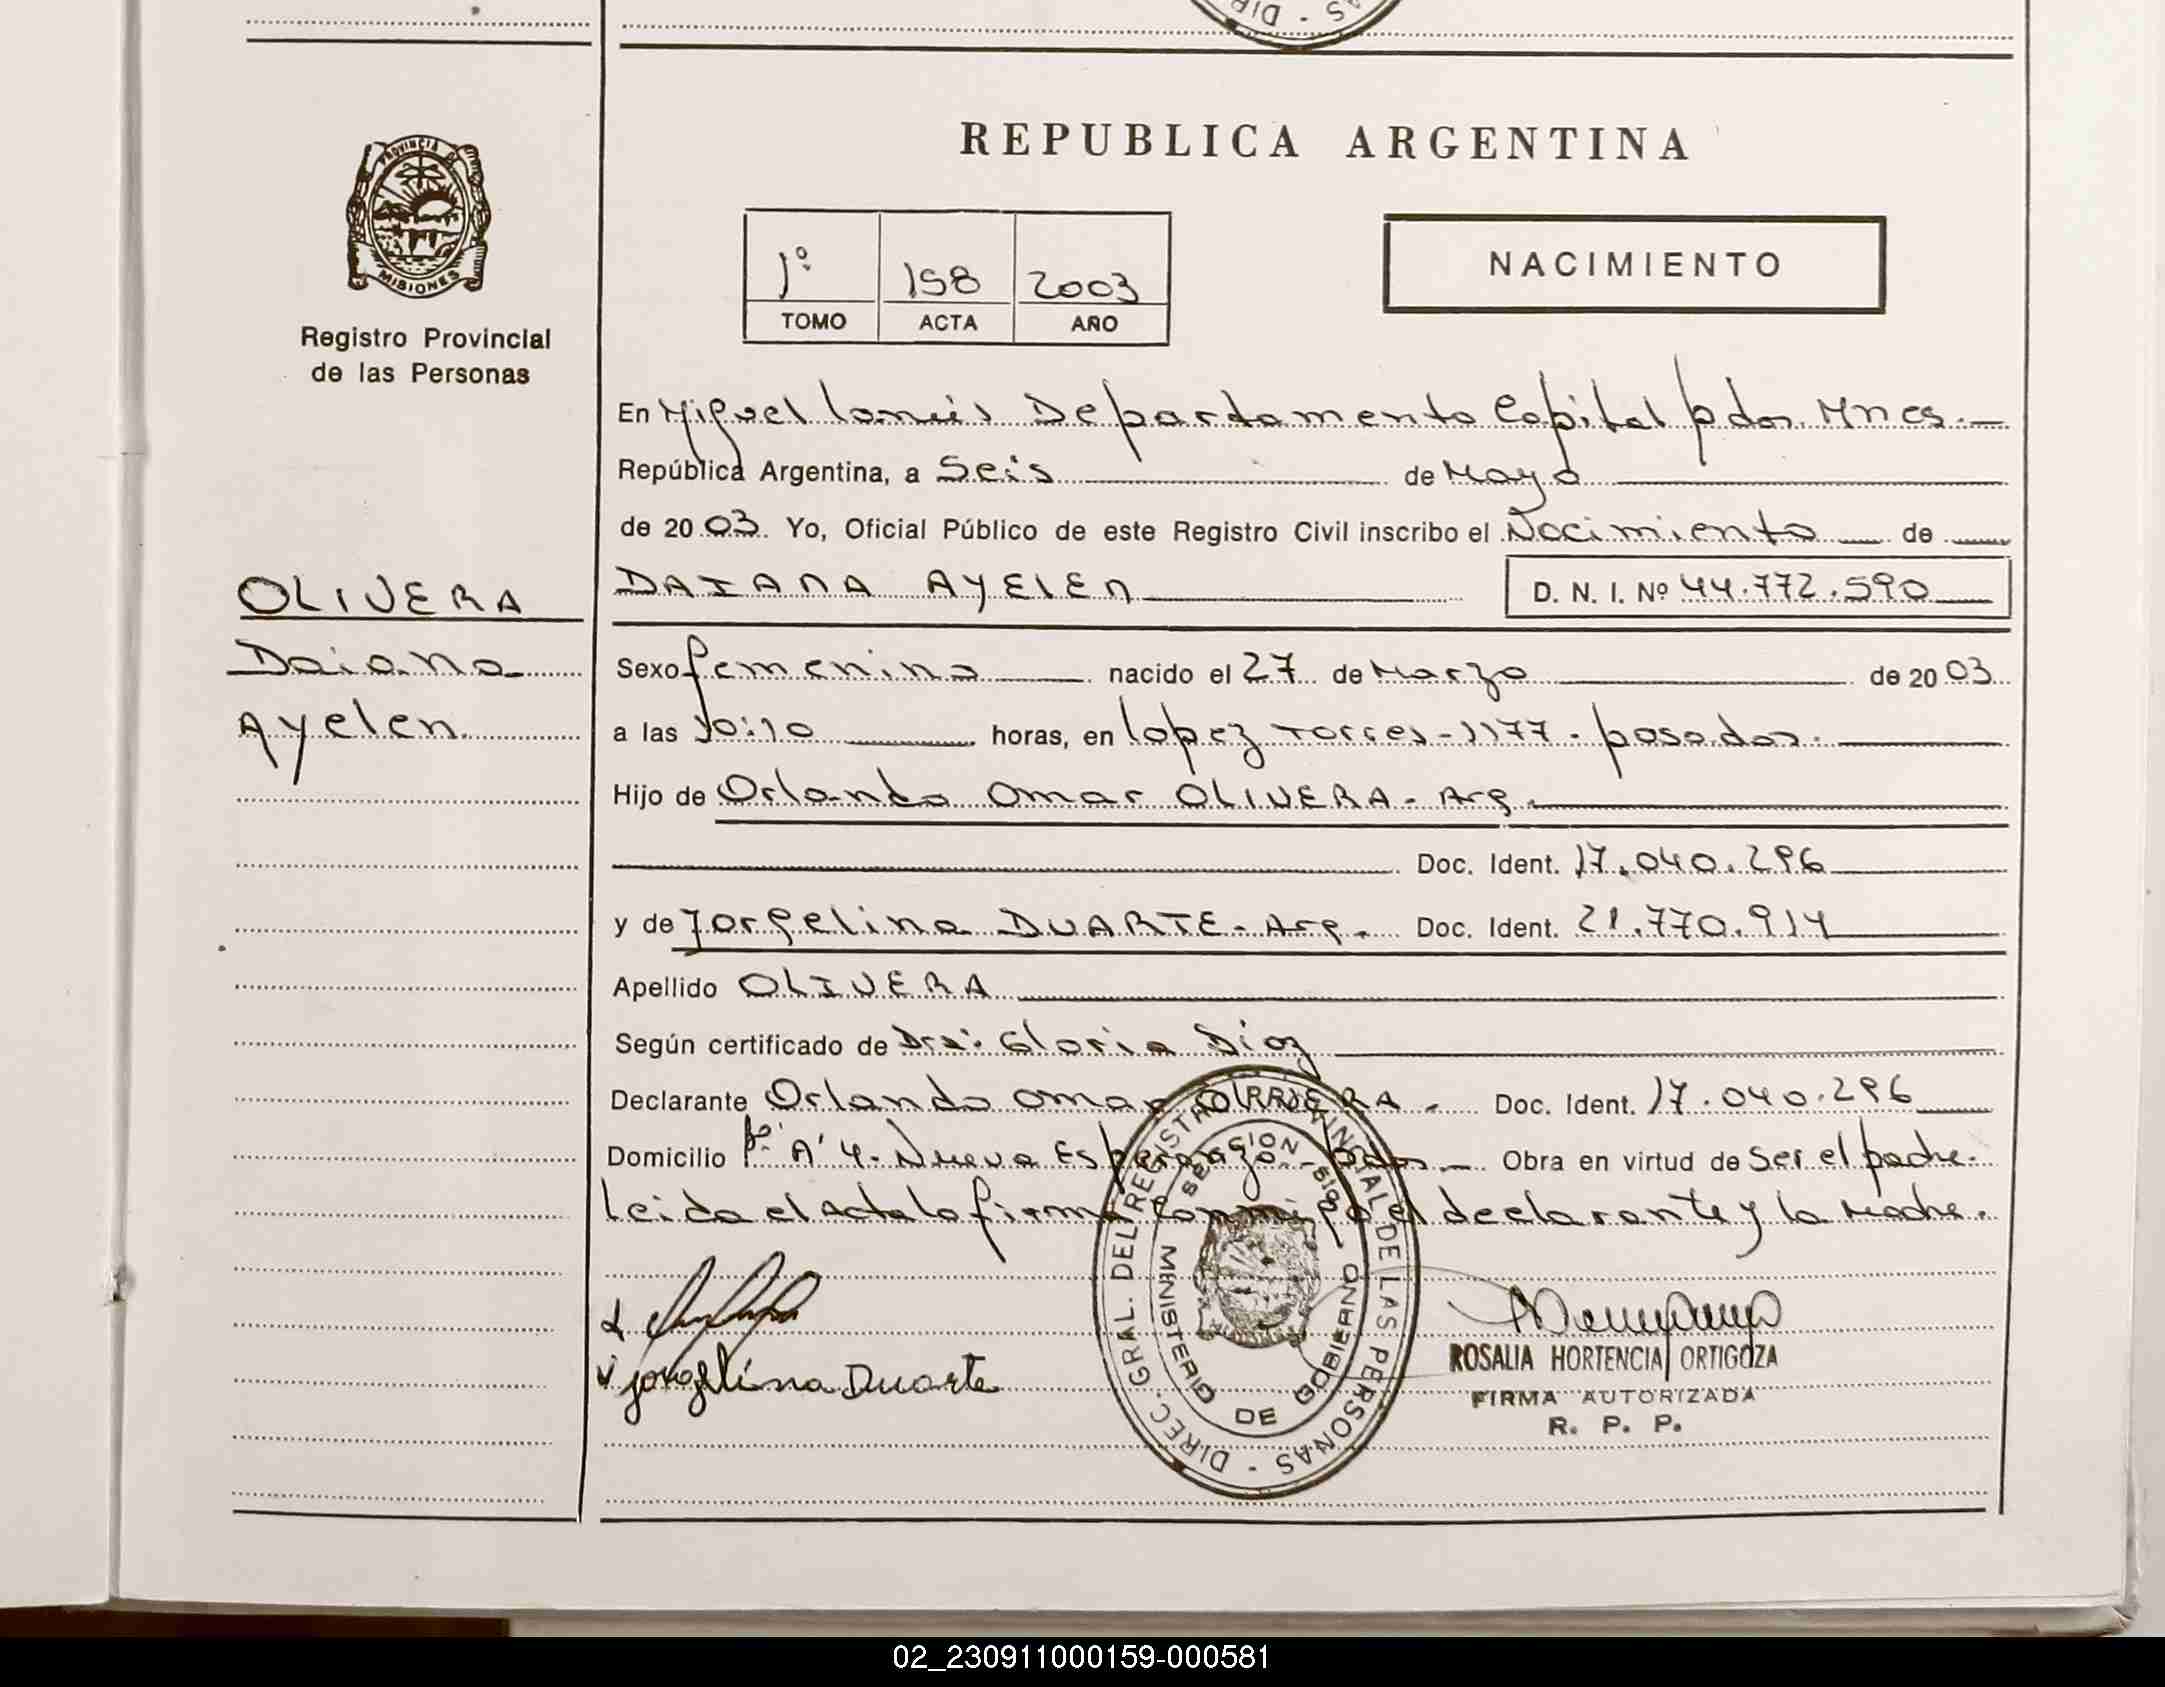 REPUBLICA ARGENTINA
PROVINCIA DE
MISIONES
Registro Provincial
de las Personas
1º 158 2003
TOMO ACTA AÑO
NACIMIENTO
En Miguel Lanús Departamento Capital pdas. Mnes.-
República Argentina, a Seis de Mayo
de 2003. Yo, Oficial Público de este Registro Civil inscribo el Nacimiento de
OLIVERA
Daiana
Ayelen
DAIANA AYELEN D. N. I. Nº 44.772.590
Sexo femenino nacido el 27 de Marzo de 2003
a las 10:10 horas, en Lopez Torres-1177-posadas.
Hijo de Orlando Omar OLIVERA-Arg.
Doc. Ident. 17.040.296
y de Jorgelina DUARTE-Arg. Doc. Ident. 21.770.914
Apellido OLIVERA
Según certificado de Dra: Gloria Diaz
Declarante Orlando Omar OLIVERA. Doc. Ident. 17.040.296
Domicilio 'A' 4-Nueva Esperanza-Pdas. Obra en virtud de Ser el padre.
Leida el Acta la firma conmigo el declarante y la Madre.
Jorgelina Duarte
DIREC. GRAL. DEL REGISTRO PROVINCIAL DE LAS PERSONAS
MINISTERIO DE GOBIERNO
ROSALIA HORTENCIA ORTIGOZA
FIRMA AUTORIZADA
R. P. P.
02_230911000159-000581